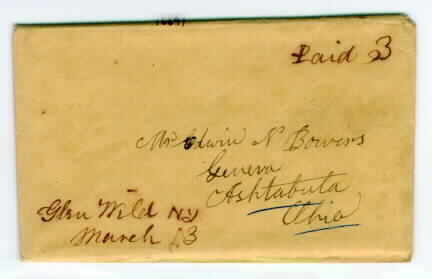 Paid 3
Mr Edwin N Bowers
Geneva
Ashtabula
Ohio
Glen Wild NY
March 13